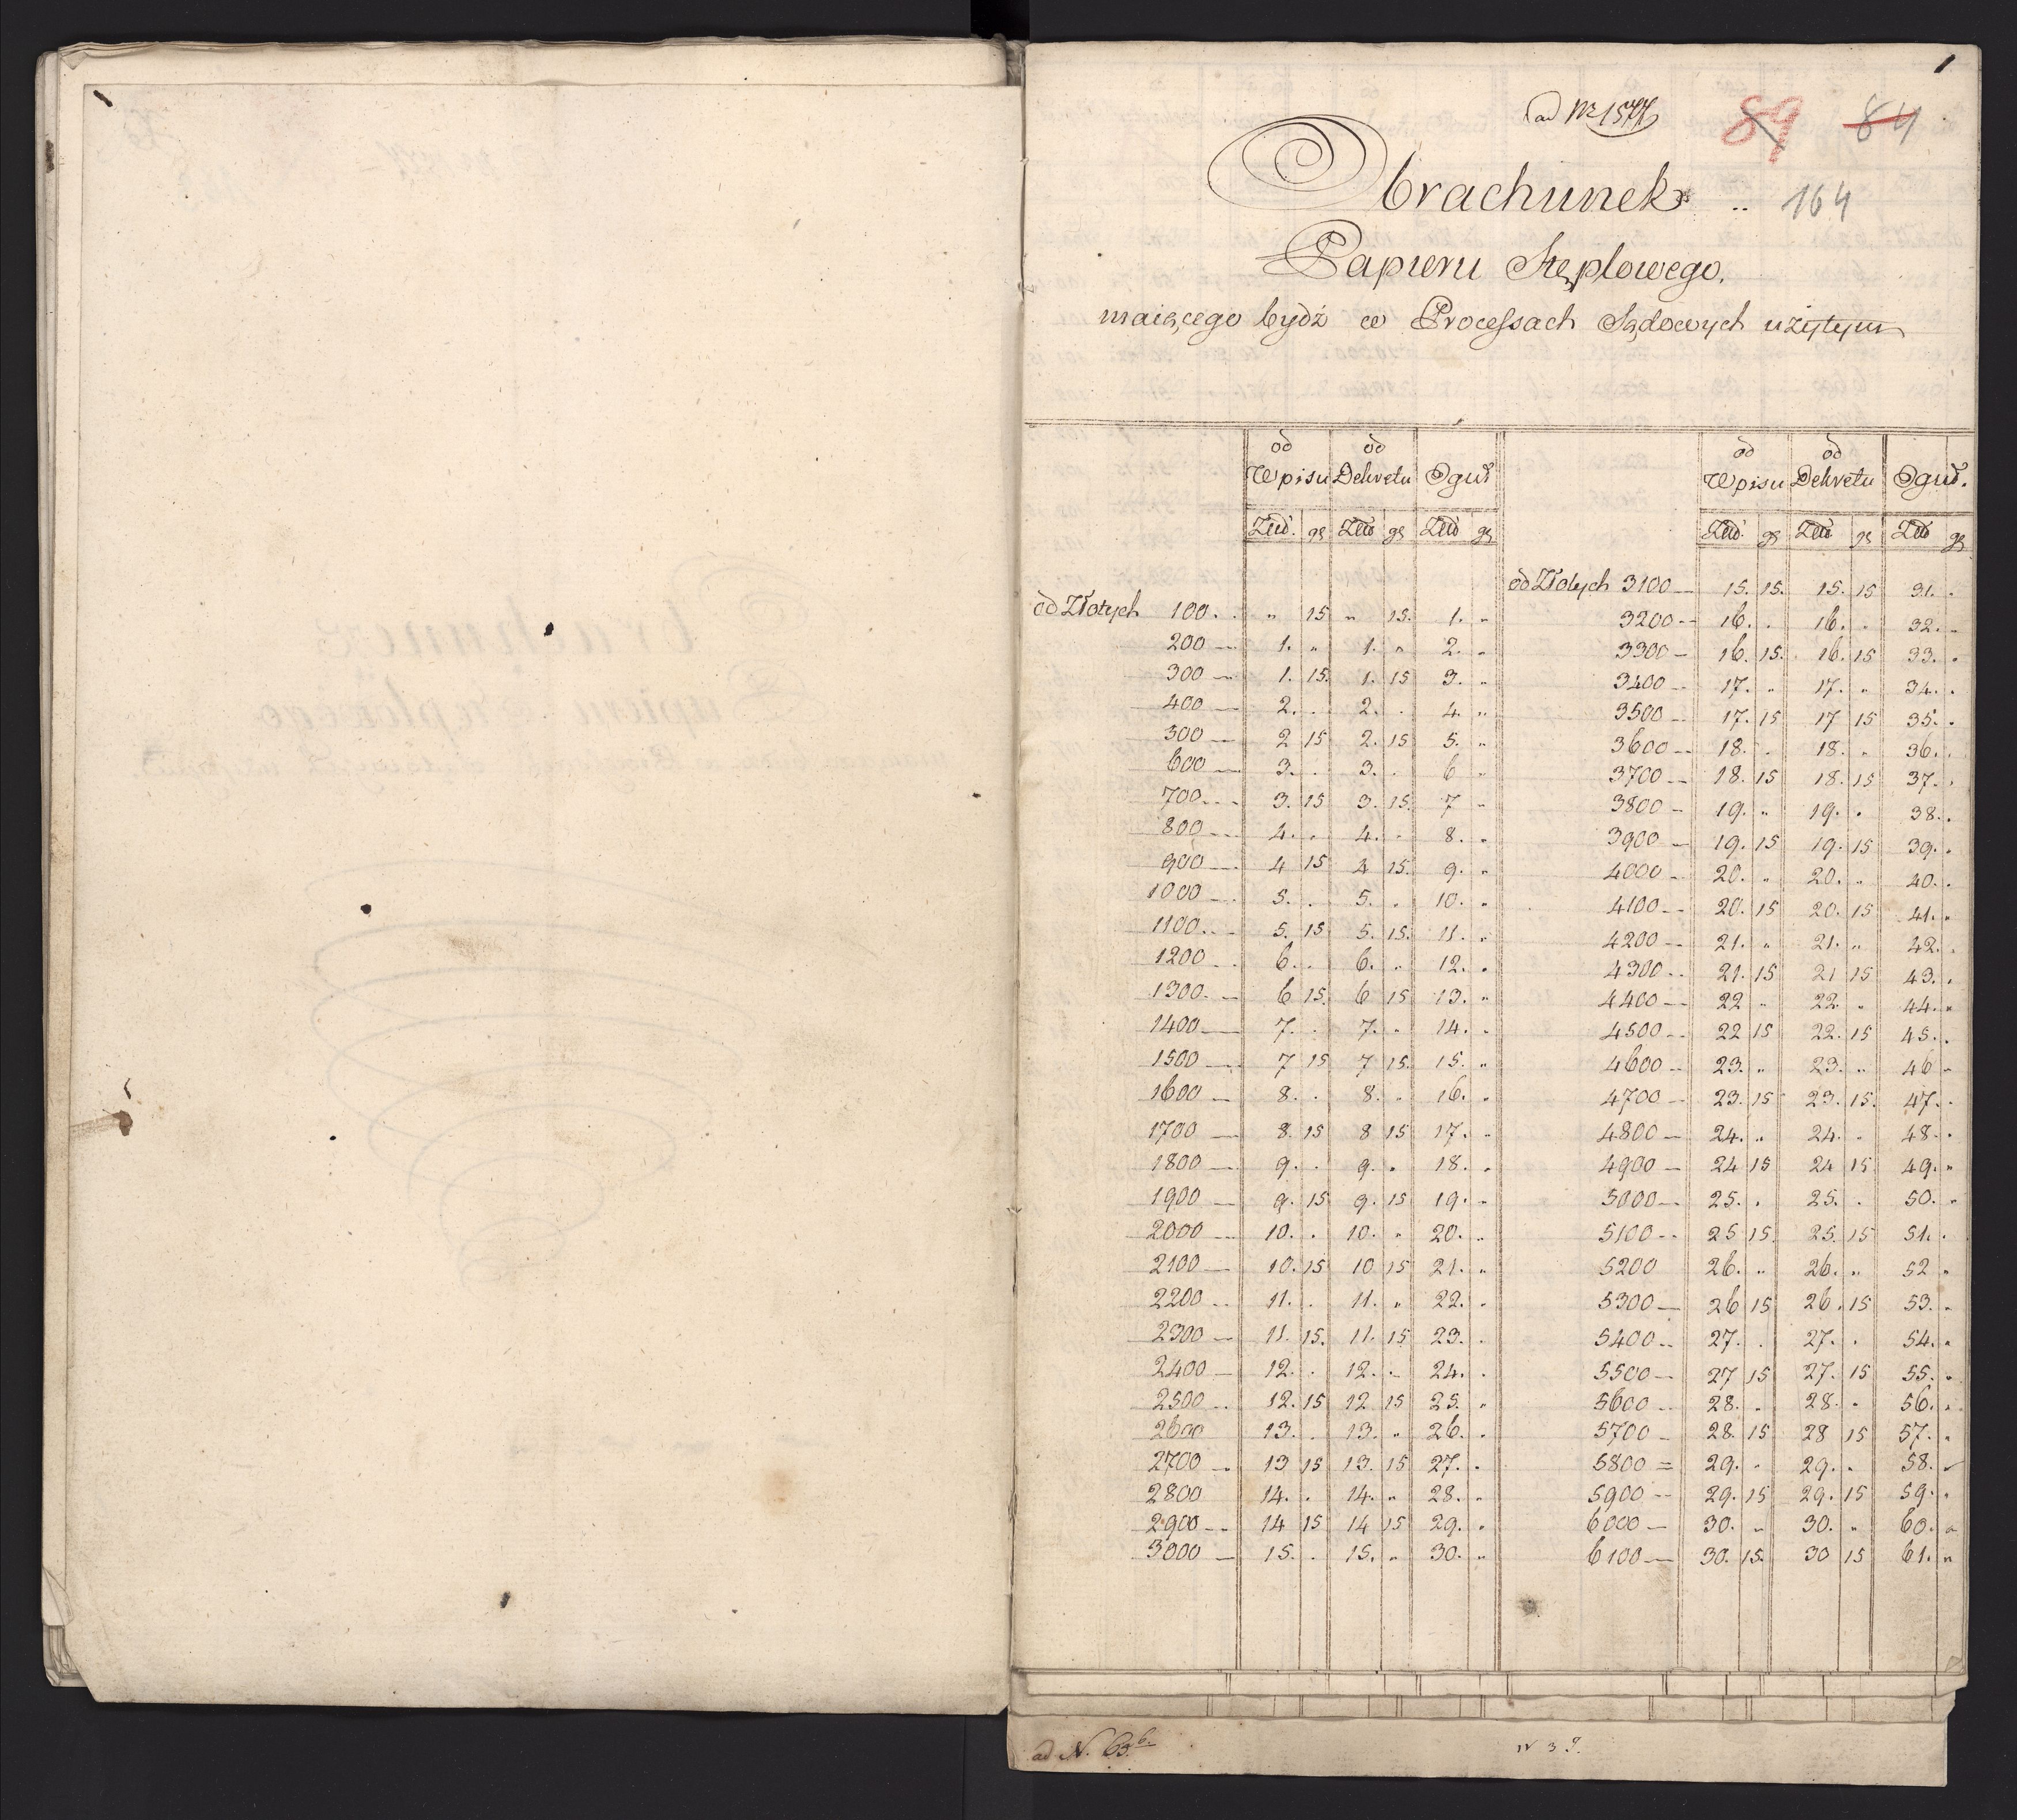 ad Nr 1577
89 84
1
Obrachunek
164
Papieru Stęplowego.
maiącego bydź w Processach Sądowych użytym
od Wpisu | od Dekretu | Oguł | od Wpisu | od Dekretu | Oguł.
Złł. | gr | Złł | gr | Złł | gr | Złł. | gr | Złł | gr | Złł | gr
od Złotych 100 . " 15 " 15. 1. "
200 — 1. " 1. " 2. "
300 — 1. 15. 1. 15 3. "
400 — 2. . 2. . 4. "
300 — 2 15 2. 15 5. "
600 — 3. . 3. . 6 "
700 — 3. 15 3. 15. 7 "
800 — 4. . 4. . 8. "
900 — 4 15 4 15. 9. "
1000 — 5. . 5. . 10. "
1100 — 5. 15 5. 15. 11. "
1200 — 6. . 6. . 12. "
1300 — 6 15. 6 15 13. "
1400 — 7. . 7. " 14. "
1500 — 7 15 7 15. 15. "
1600 — 8. . 8. " 16. "
1700 — 8. 15 8 15 17. "
1800 — 9. . 9. " 18. "
1900 — 9. 15 9. 15 19. "
2000 — 10. . 10. " 20. "
2100 — 10. 15 10 15 21. "
2200 — 11. . 11. " 22. "
2300 — 11. 15. 11. 15 23. .
2400 — 12. . 12. " 24. .
2500 — 12. 15 12 15 25. "
2600 13. . 13. " 26. .
2700 — 13 15 13. 15 27. .
2800 14. . 14. " 28. "
2900 — 14 15 14 15 29. "
3000 — 15. . 15. " 30. "
od Złotych 3100 — 15. 15. 15. 15 31. .
3200 — 16. . 16. . 32. "
3300 — 16. 15. 16. 15 33. .
3400 — 17. " 17. " 34. .
3500 — 17. 15 17 15 35. .
3600 — 18. . 18. " 36. .
3700 — 18. 15 18. 15 37. .
3800 — 19. " 19. . 38. .
3900 — 19. 15 19. 15 39. .
4000 — 20. " 20. " 40. .
4100 — 20. 15 20. 15 41. "
4200 — 21. " 21. " 42. .
4300 — 21. 15 21 15 43. .
4400 — 22 " 22. " 44. "
4500 — 22 15 22. 15 45. .
4600 — 23. " 23. " 46 "
4700 — 23. 15 23. 15. 47. .
4800 — 24. " 24. . 48. .
4900 — 24 15 24 15 49. "
5000 — 25. . 25. . 50. "
5100 — 25 15. 25. 15 51. .
5200 26. " 26. " 52 "
5300 — 26 15 26. 15 53. "
5400 — 27. . 27. . 54. "
5500 — 27 15 27. 15 55. "
5600 — 28. . 28. " 56. .
5700 — 28. 15 28 15 57. "
5800 = 29. . 29. . 58. "
5900 — 29. 15 29. 15 59. "
6000 — 30. " 30. " 60. "
6100 — 30. 15. 30 15 61. "
ad N. 63 b.
N 39.